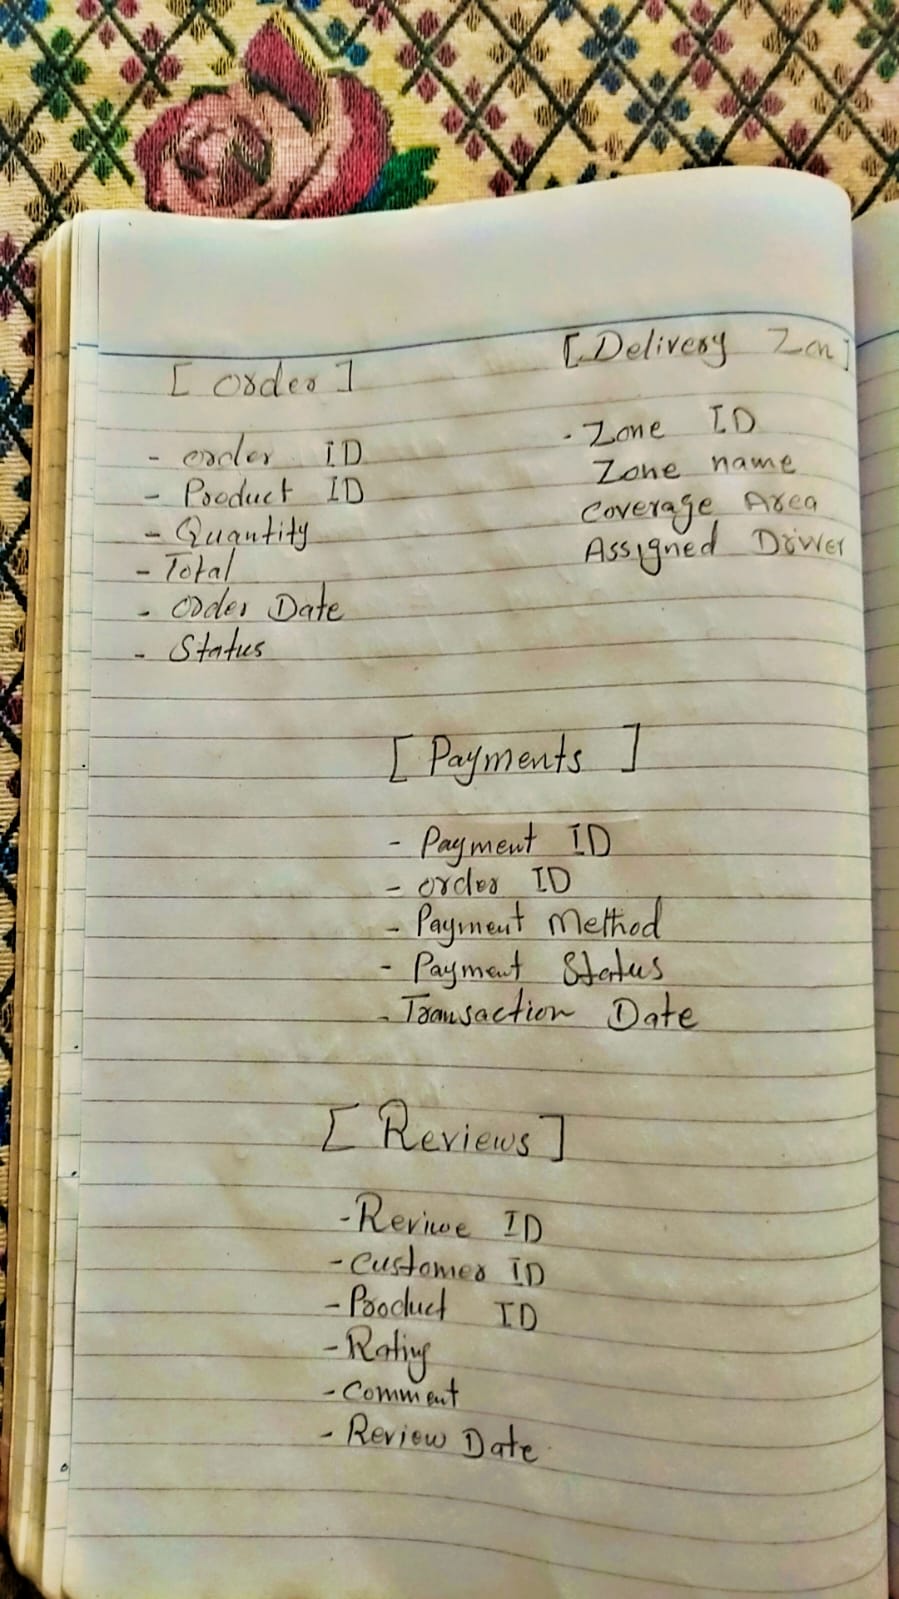 [ Order ]
- order ID
- Product ID
- Quantity
- Total
- Order Date
- Status
[ Delivery Zon ]
- Zone ID
Zone name
Coverage Area
Assigned Driver
[ Payments ]
- Payment ID
- order ID
- Payment Method
- Payment Status
- Transaction Date
[ Reviews ]
- Reviwe ID
- Customer ID
- Product ID
- Rating
- Comment
- Review Date